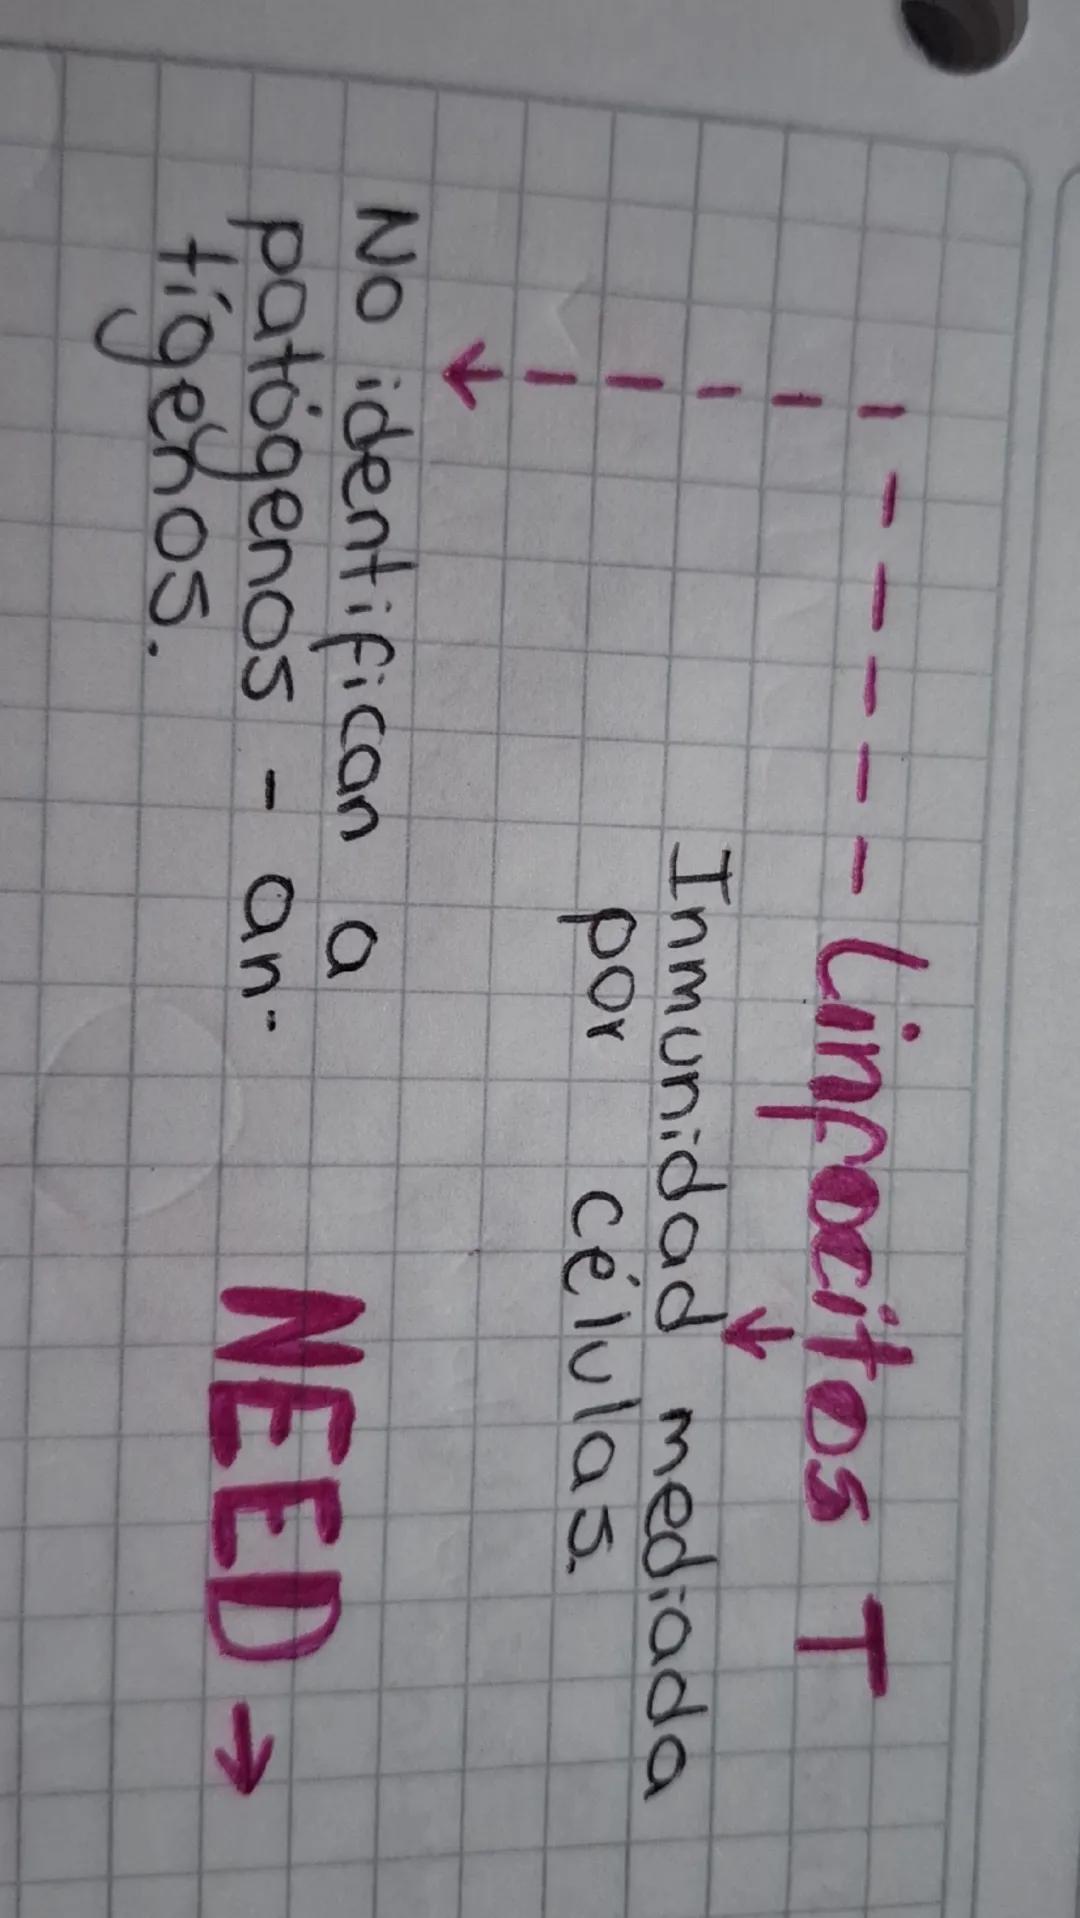 Linfocitos T
Inmunidad mediada
por células.
No identifican a
patógenos - an-
tígenos.
NEED →